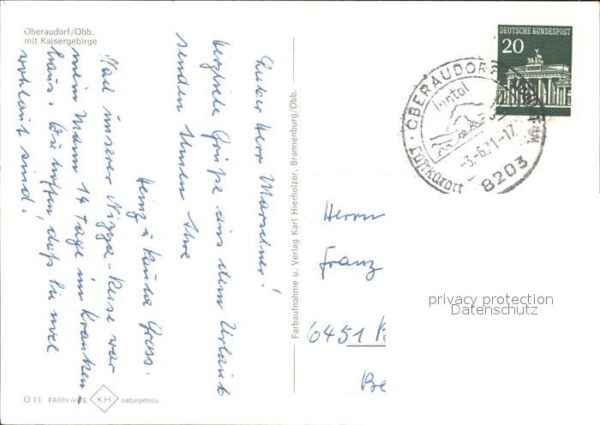 Oberaudorf/Obb.
mit Kaisergebirge
Lieber Herr Marschner!
Herzliche Grüße aus dem Urlaub
senden Ihnen Ihre
Heinz u. Gross.
Nach unserer - Reise war
mein Mann 14 Tage im Kranken-
haus. Wir hoffen, daß Sie
wohlauf sind!
O 11 FARBKARTE KH naturgetreu
Farbaufnahme u. Verlag Karl Hierholzer, Brannenburg/Obb.
DEUTSCHE BUNDESPOST
20
OBERAUDORF
Inntal
-3.-6.71-17
Luftkurort
8203
Herrn
Franz
6451
Be
privacy protection
Datenschutz